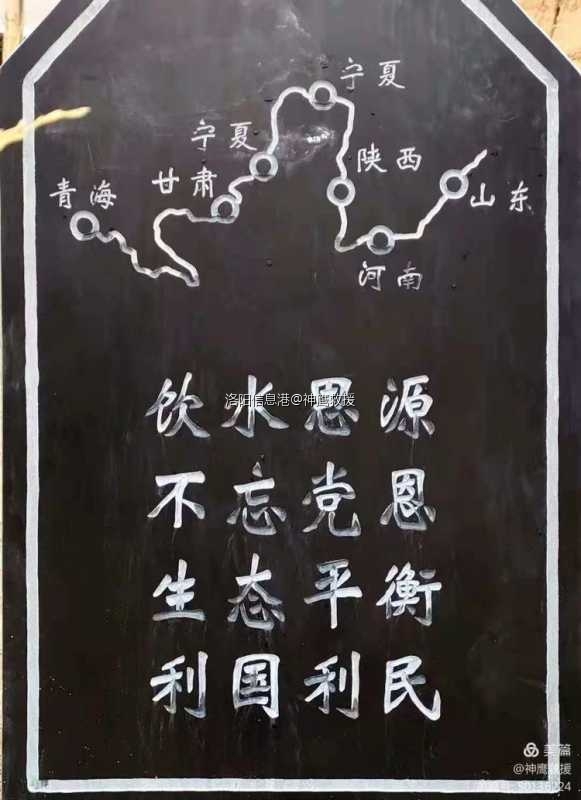 宁夏
宁夏
陕西
甘肃
青海
山东
河南
饮水思源
洛阳信息港@神鹰救援
不忘党恩
生态平衡
利国利民
美篇
@神鹰救援